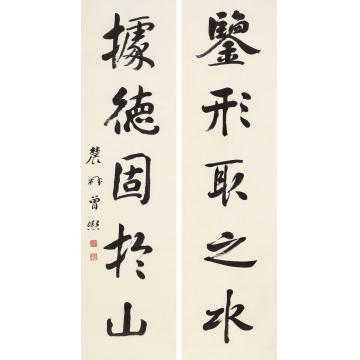 鑒形取之水
據德固於山
農髯曾熙